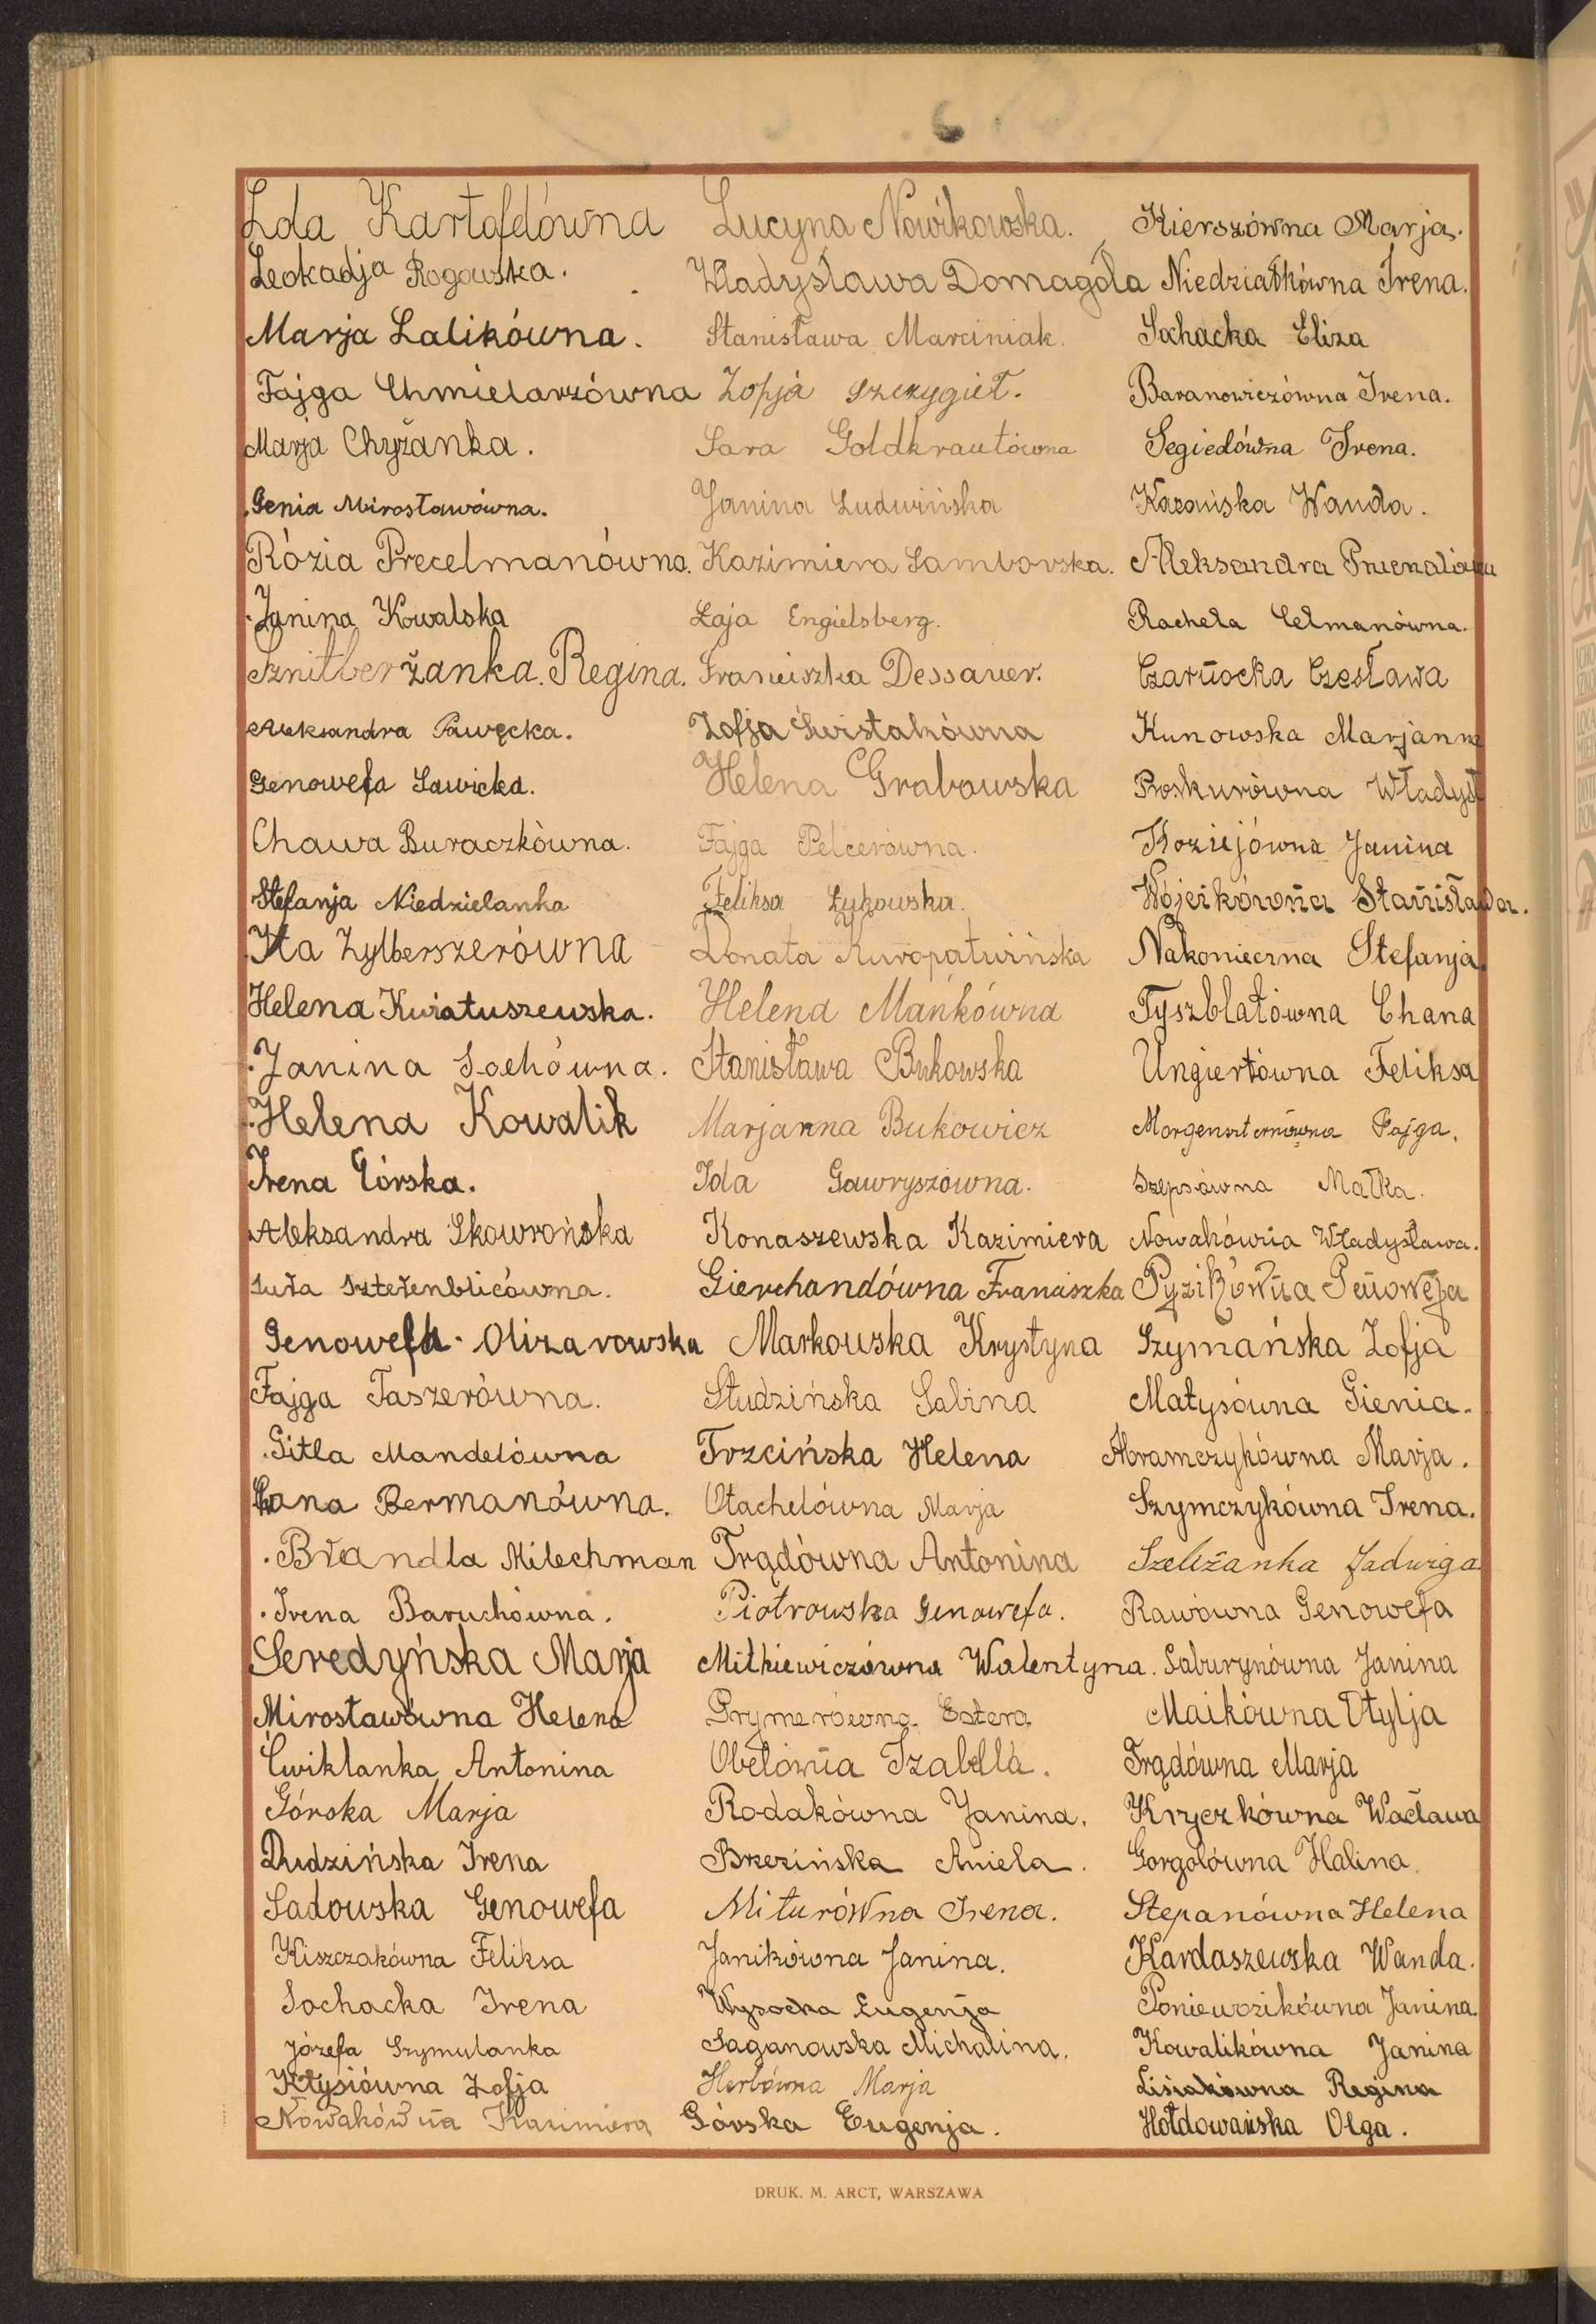 Ida Kartofelówna
Leokadja Rogowska.
Marja Lalikówna.
Fajga Chmielarzówna
Marja Chyżanka.
Genia Mirosławówna.
Rózia Precelmanówna.
Janina Kowalska
Sznitberżanka. Regina.
Aleksandra Pawęcka.
Genowefa Sawicka.
Chawa Buraczkówna.
Stefanja Niedzielanka
Ita Zylberszerówna
Helena Kwiatuszewska.
Janina Sochówna.
Helena Kowalik
Irena Górska.
Aleksandra Skowrońska
Sztetenblicówna.
Genowefa Olizarowska
Fajga Taszerówna.
Gitla Mandelówna
Bermanówna.
Brandla Milechman
Irena Baruchówna.
Seredyńska Marja
Mirosławówna Helena
Ćwiklanka Antonina
Górska Marja
Dudzińska Irena
Sadowska Genowefa
Kiszczakówna Feliksa
Sochacka Irena
Józefa Szymulanka
Kłysiówna Zofja
Nowakówna Kazimiera
Lucyna Nowikowska.
Władysława Domagała
Stanisława Marciniak.
Zofja Szczygieł.
Sara Goldkrautówna
Janina Ludwińska
Kazimiera Samborska.
Łaja Engielsberg.
Franciszka Dessauer.
Zofja Świstakówna
Helena Grabowska
Fajga Pelcerówna.
Feliksa Żukowska.
Donata Kuropatwińska
Helena Mańkówna
Stanisława Bukowska
Marjanna Bukowicz
Ida Gawryszówna.
Konaszewska Kazimiera
Gierchandówna Franciszka
Markowska Krystyna
Studzińska Sabina
Trzcińska Helena
Otachelówna Marja
Trądówna Antonina
Piotrowska Genowefa.
Mitkiewiczówna Walentyna.
Prymerówna. Estera
Obelówna Izabella.
Rodakówna Janina.
Brzezińska Aniela.
Miturówna Irena.
Janikówna Janina.
Wysocka Eugenja
Saganowska Michalina.
Herbówna Marja
Górska Eugenja.
Kierszówna Marja.
Niedziałkówna Irena.
Sochacka Eliza
Baranowiczówna Irena.
Segiedówna Irena.
Kazańska Wanda.
Aleksandra
Rachela Celmanówna.
Czarnocka Czesława
Kunowska Marjanna
Proskurówna Władysł
Koziejówna Janina
Wójcikówna Stanisława.
Nakonieczna Stefanja.
Tyszblatówna Chana
Ungiertówna Feliksa
Morgenszternówna Fajga.
Szepsówna Małka.
Nowakówna Władysława.
Pyzikówna Genowefa
Szymańska Zofja
Matysówna Gienia.
Abramczykówna Marja.
Szymczykówna Irena.
Szeliżanka Jadwiga
Rawówna Genowefa
Saburynówna Janina
Maikówna Otylja
Trądówna Marja
Kryczkówna Wacława
Gorgolówna Halina.
Stepanówna Helena
Kardaszewska Wanda.
Poniewozikówna Janina.
Kowalikówna Janina
Lisiakówna Regina
Hołdowańska Olga.
DRUK. M. ARCT, WARSZAWA